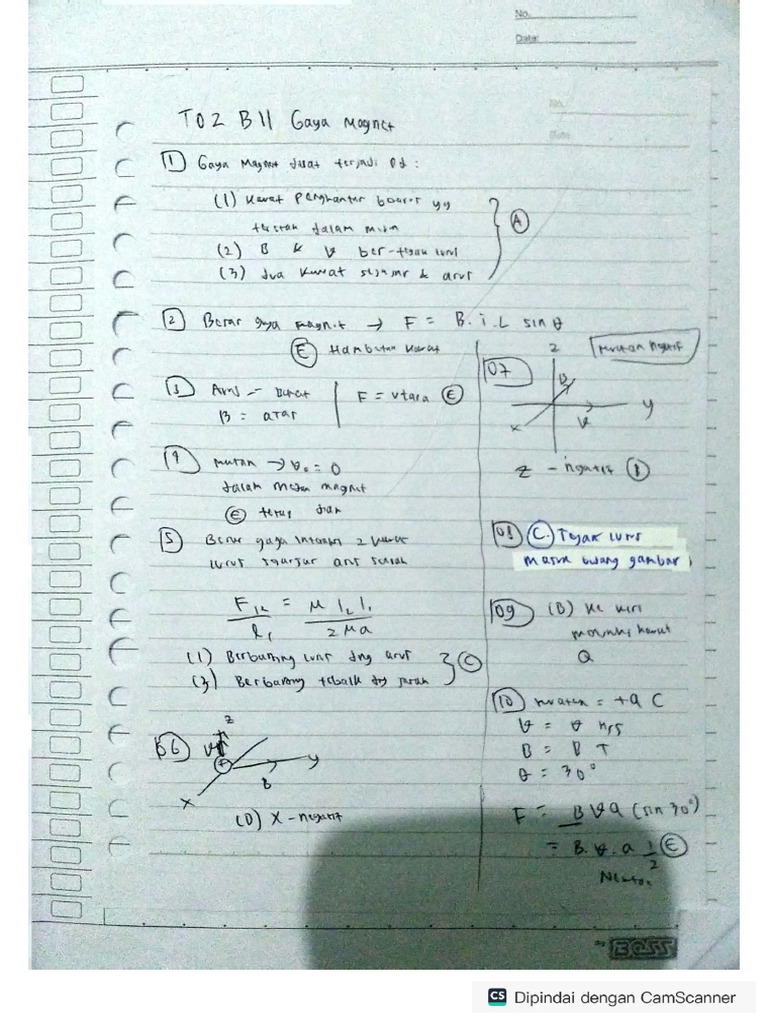 No.
Date:
No.
Date
TO2 B11 Gaya Magnet
1 Gaya Magnet dapat terjadi Pd :
(1) Kawat Penghantar berarus yg
dalam
(2) B & V ber-tegak lurus
(3) dua kawat sejajar & arus
A
2 Besar gaya magnit → F = B.i.L sin θ
E Hambatan kawat
3 Arus - Barat
B = atas
F = utara E
4 mutan → V₀ = 0
dalam medan magnet
E tetap diam
5 Besar gaya 2 kawat
lurus sejajar
F12 / l1 = μ I2 I1 / 2 π a
(1) Berbanding lurus dng arus
(3) Berbanding tebalik dg jarak
C
06 V
z
y
B
x
(D) X - negatif
07 z muatan negatif
B
y
x
V
z - negatif
08 C. Tegak lurus
masuk bidang gambar
09 (B) ke kiri
kawat
Q
10 muatan = +q C
V = V m/s
B = B T
θ = 30°
F = B V q (sin 30°)
= B. V. q 1/2 E
Newton
BOSS
CS Dipindai dengan CamScanner